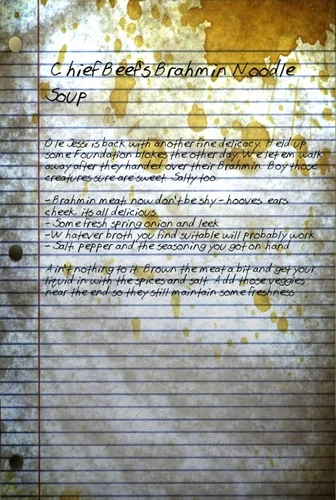 Chief Beefs Brahmin Noodle
Soup
Ole Jess is back with another fine delicacy. Held up
some Foundation blokes the other day. We let em walk
away after they handed over their Brahmin. Boy those
creatures sure are sweet. Salty too
-Brahmin meat, now don't be shy - hooves ears
cheek. its all delicious
-Some fresh spring onion and leek
-Whatever broth you find suitable will probably work
-Salt, pepper and the seasoning you got on hand
Ain't nothing to it. Brown the meat a bit and get your
liquid in with the spices and salt. Add those veggies
near the end so they still maintain some freshness